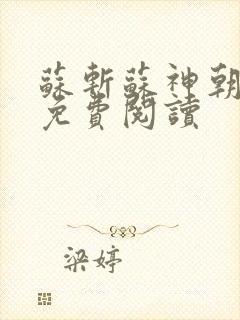 蘇斬蘇神朝
免費閱讀
梁婷